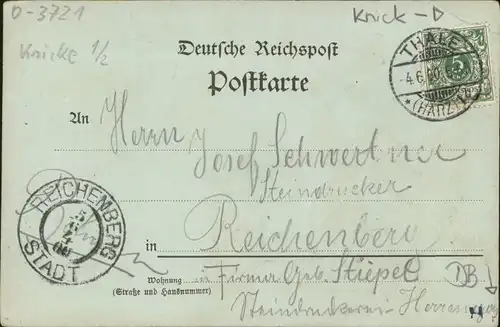 D-3721
Krick-D
Kricke 1/2
Deutsche Reichspost
Postkarte
THALE
4.6.00
* (HARZ) *
An Herrn Josef Schwertner
Steindrucker
in Reichenberg
REICHENBERG
5
6
00
STADT
Wohnung
(Straße und Hausnummer)
in Firma Geb. Stiepel
DB
Steindruckerei